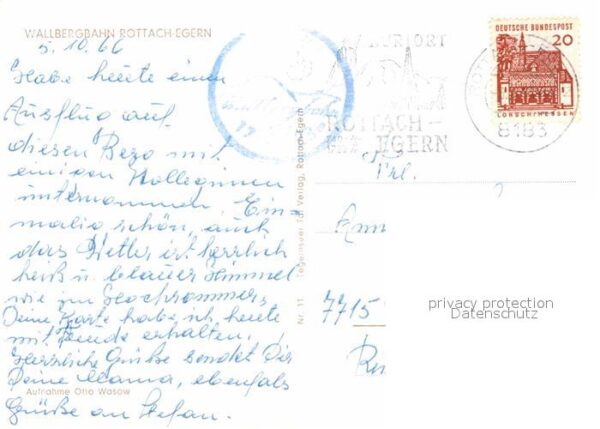 WALLBERGBAHN ROTTACH-EGERN
5.10.66
Habe heute einen
Ausflug auf
diesen Berg mit
einigen Kolleginnen
unternommen. Ein-
malig schön, auch
das Wetter ist herrlich
heiß u. blauer Himmel
wie im Hochsommer,
Deine Karte habe ich heute
mit Freude erhalten.
Herzliche Grüße sendet Dir
Deine Mama, ebenfals
Grüße an Stefan.
Aufnahme Otto Wasow
Nr. 11 Tegernseer Tal Verlag, Rottach-Egern
KURORT
ROTTACH-
EGERN
8183
DEUTSCHE BUNDESPOST
20
LORSCH/HESSEN
Frl.
7715
privacy protection
Datenschutz